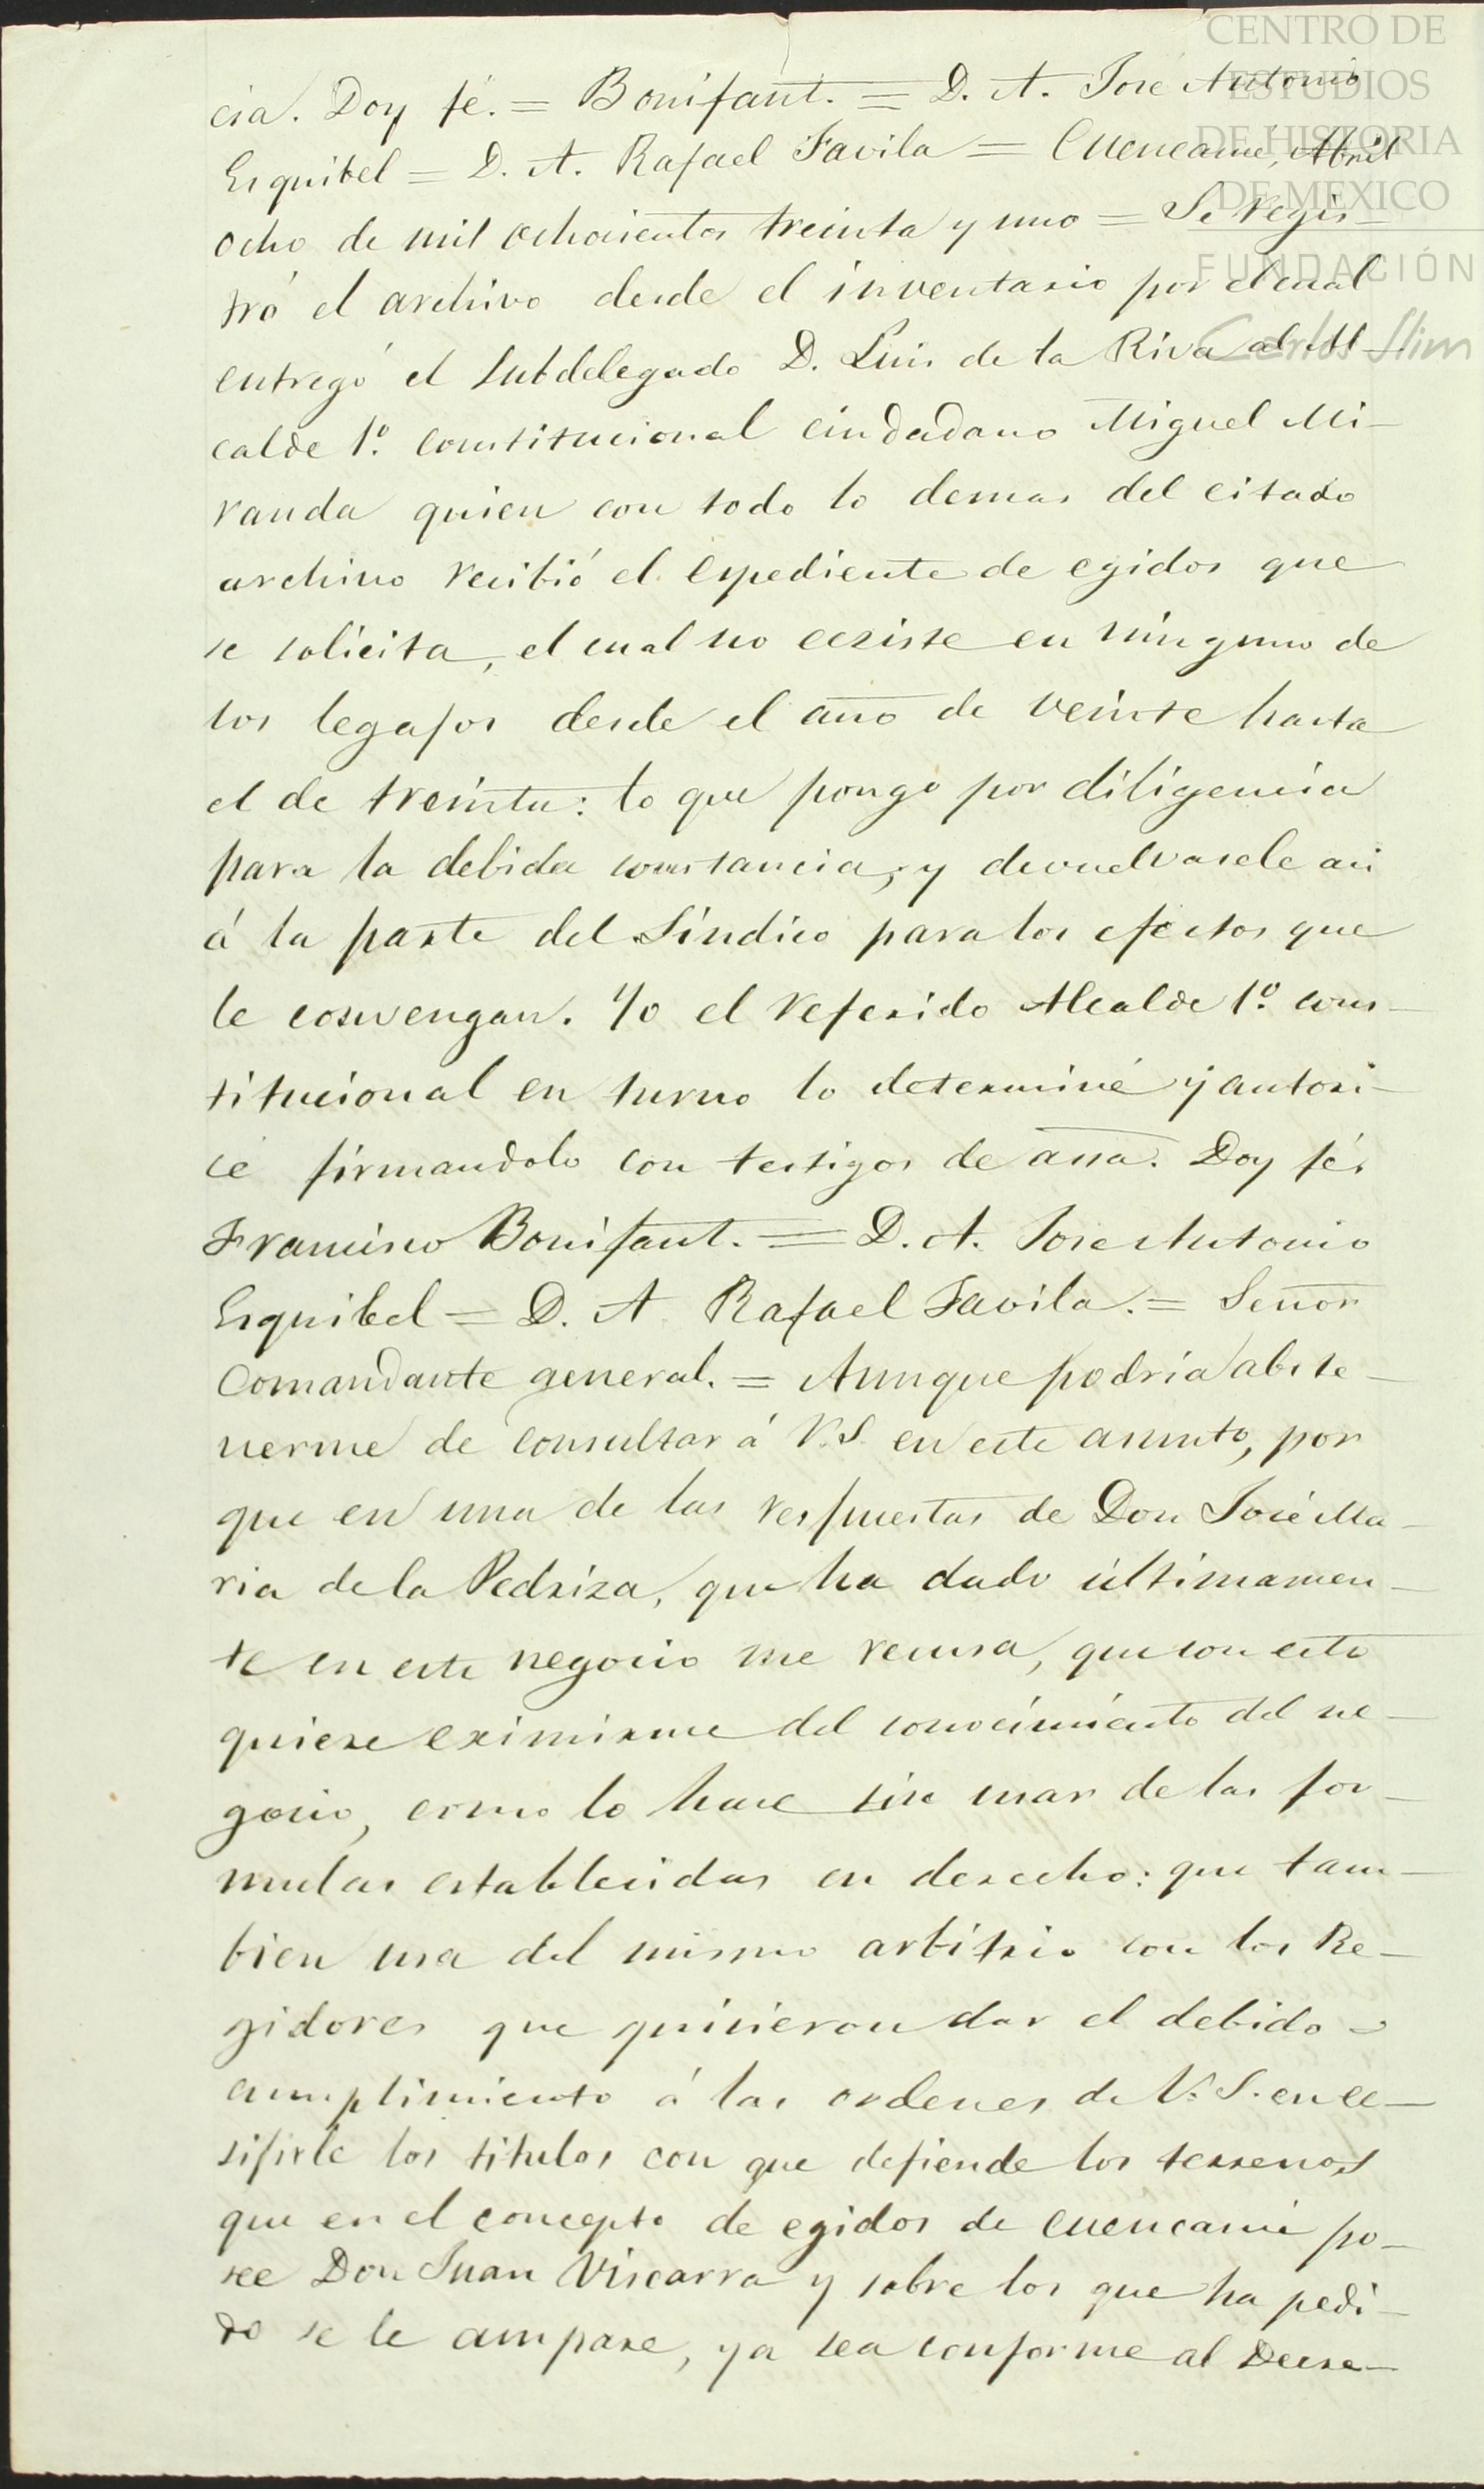 CENTRO DE
ESTUDIOS
DE HISTORIA
DE MEXICO
FUNDACIÓN
Carlos Slim
cia. Doy fé. = Bonifant. = D. A. José Antonio
Esquibel = D. A. Rafael Favila = Cuencamé, Abril
ocho de mil ochocientos treinta y uno = Se regis-
tró el archivo desde el inventario por el cual
entregó el Subdelegado D. Luis de la Riva al Al-
calde 1º. constitucional ciudadano Miguel Mi-
randa quien con todo lo demas del citado
archivo recibió el espediente de egidos que
se solicita, el cual no ecsiste en ninguno de
los legajos desde el año de veinte hasta
el de treinta: lo que pongo por diligencia
para la debida constancia, y devuelvasele asi
á la parte del Síndico para los efectos que
le convengan. Yo el referido Alcalde 1º. cons-
titucional en turno lo determiné y autori-
cé firmandolo con testigos de assa. Doy fé.
Francisco Bonifant. = D. A. José Antonio
Esquibel = D. A. Rafael Favila. = Señor
Comandante general. = Aunque podria abste-
nerme de consultar á V.S. en este asunto, por
que en una de las respuestas de Don José Ma-
ria de la Pedriza, que ha dado últimamen-
te en este negocio me recusa, que con esto
quiere eximirme del conocimiento del ne-
gocio, como lo hace sin usar de las for-
mulas establecidas en derecho: que tam-
bien usa del mismo arbitrio con los Re-
gidores que quisieron dar el debido
cumplimiento á las ordenes de V.S. en ec-
sijirle los titulos con que defiende los terrenos
que en el concepto de egidos de Cuencamé po-
see Don Juan Viscarra y sobre los que ha pedi-
do se le ampare, ya sea conforme al Decre-